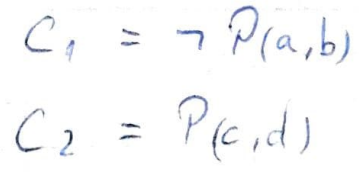 C₁ = ¬ P(a,b)
C₂ = P(c,d)